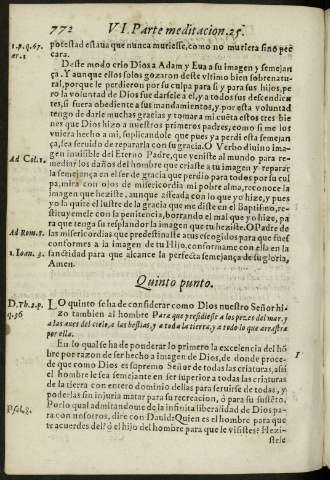 772 VI. Parte meditacion. 25.
1. p. q. 67.
ar. 1
potestad estaua que nunca muriesse, como no muriera sino pec
cara.
Deste modo crio Dios a Adam y Eua a su imagen y semejan
ça. Y aunque ellos solos gozaron deste vltimo bien sobrenatu
ral, porque le perdieron por su culpa para si y para sus hijos, pe
ro la voluntad de Dios fue darsele a el, y a todos sus descendien
tes, si fuera obediente a sus mandamientos, y por esta voluntad
tengo de darle muchas gracias y tomar a mi cuẽta estos bie
nes que Dios hizo a nuestros primeros padres, como si me los
vuiera hecho a mi, suplicandole que pues ya perdi esta semejan
ça, sea seruido de repararla con su gracia. O Verbo diuino ima-
Ad Col. 1.
gen inuisible del Eterno Padre, que veniste al mundo para re-
mediar los daños del hombre que criaste a tu imagen y reparar
la semejança en el ser de gracia que perdio para todos por su cul
pa, mira con ojos de misericordia mi pobre alma, reconoce la
imagen que heziste, aunque afeada con lo que yo hize, y pues
yo la quite el lustre de la gracia que me diste en el Baptismo, re-
stituyemele con la penitencia, borrando el mal que yo hize, pa
ra que tenga su resplandor la imagen que tu heziste. O Padre de
Ad Rom. 8.
las misericordias que predestinaste a tus escogidos para que fuess
conformes a la imagen de tu Hijo, conformame con ella en la
1. Ioan. 3.
sanctidad para que alcance la perfecta semejança de su gloria,
Amen.
Quinto punto.
D. Th. 2. p.
q. 96
LO quinto se ha de considerar como Dios nuestro Señor hi-
zo tambien al hombre Para que presidiesse a los pezes del mar, y
a las aues del cielo, a las bestias, y a toda la tierra, y a todo lo que arrastra
por ella.
En lo qual se ha de ponderar lo primero la excelencia del hõ
1
bre por razon de ser hecho a imagen de Dios, de donde proce-
de que como Dios es supremo Señor de todas las criaturas, assi
el hombre le sea semejante en ser superior a todas las criaturas
de la tierra con entero dominio dellas para seruirse de todas, y
poderlas sin injuria matar para su recreacion, ò para su sustẽto.
Por lo qual admirandome de la infinita liberalidad de Dios pa-
Psal. 8.
ra con nosotros, dire con Dauid: Quien es el hombre para que
te acuerdes del? ó el hijo del hombre para que le visistes? Hezi-
stele